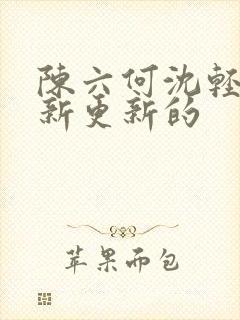 陳六何沈輕
新更新的
苹果而包